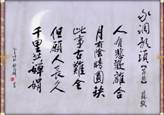 水調歌頭
蘇軾
人有悲歡離合
月有陰晴圓缺
此事古難全
但願人長久
千里共嬋娟